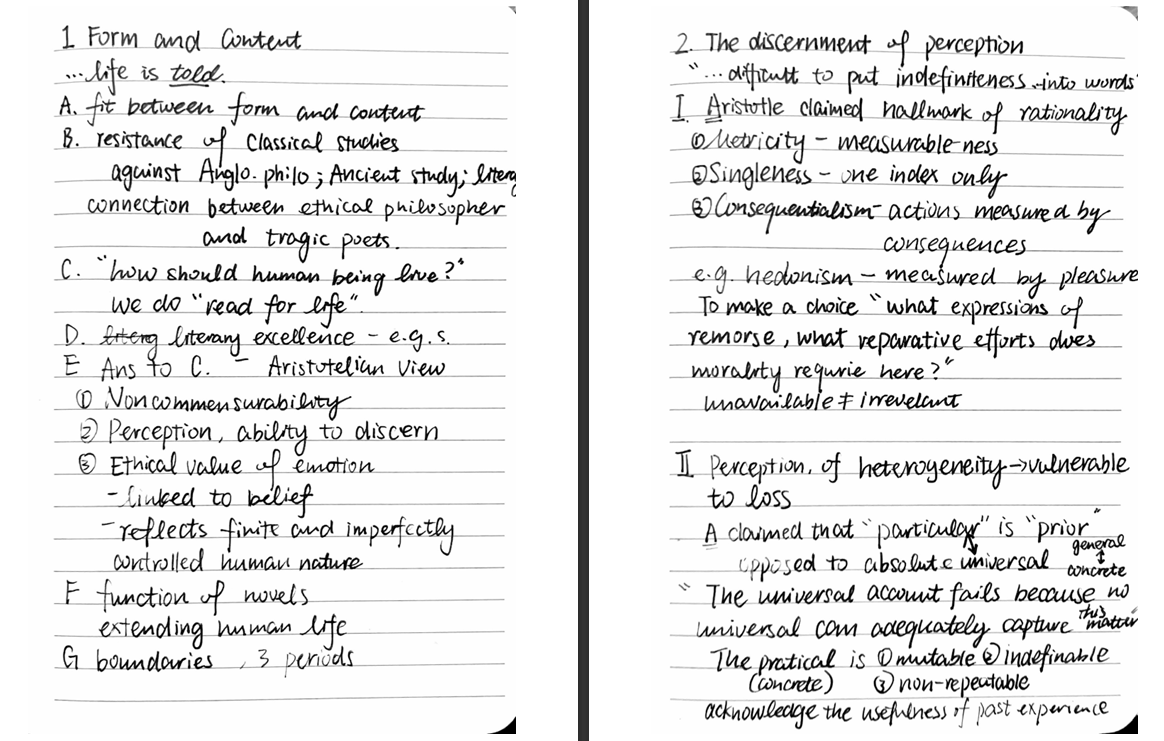 1 Form and Content
...life is told.
A. fit between form and content
B. resistance of Classical studies
against Anglo. philo ; Ancient study; literary
connection between ethical philosopher
and tragic poets.
C. "how should human being live?"
we do "read for life".
D. literary excellence - e.g.s.
E Ans to C. - Aristotelian View
① Noncommensurability
② Perception, ability to discern
③ Ethical value of emotion
- linked to belief
- reflects finite and imperfectly
controlled human nature
F function of novels
extending human life
G boundaries , 3 periods
2. The discernment of perception
"... difficult to put indefiniteness into words"
I. Aristotle claimed hallmark of rationality
① Metricity - measurable-ness
② Singleness - one index only
③ Consequentialism - actions measured by
consequences
e.g. hedonism - measured by pleasure
To make a choice "what expressions of
remorse, what reparative efforts does
morality requrie here?"
unavailable ≠ irrevelant
II Perception, of heterogeneity → vulnerable
to loss
A claimed that "particular" is "prior"
opposed to absolute universal
general
↕
concrete
" The universal account fails because no
universal can adequately capture this matter
The pratical is ① mutable ② indefinable
(concrete) ③ non-repeatable
acknowledge the usefulness of past experience